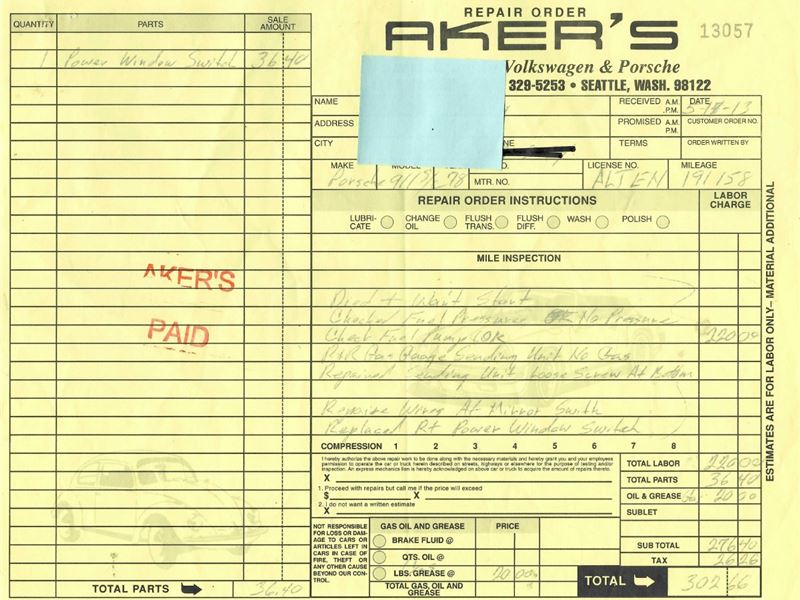 REPAIR ORDER
AKER'S
13057
Volkswagen & Porsche
329-5253 • SEATTLE, WASH. 98122
QUANTITY PARTS SALE AMOUNT
1 Power Window Switch 36 40
NAME
RECEIVED A.M. P.M.
DATE
ADDRESS
PROMISED A.M. P.M.
CUSTOMER ORDER NO.
CITY
TERMS
ORDER WRITTEN BY
MAKE
LICENSE NO.
MILEAGE
Porsche
MTR. NO.
191158
REPAIR ORDER INSTRUCTIONS
LABOR CHARGE
LUBRI-CATE
CHANGE OIL
FLUSH TRANS.
FLUSH DIFF.
WASH
POLISH
MILE INSPECTION
AKER'S
PAID
Didn't Want Start
Checked Fuel Pressure No Pressure
Check Fuel Pump OK 220 00
R&R Gas Guage Sending Unit No Gas
Repaired Sending Unit Loose Screw At Bottom
Repaire Wires At Mirror Swith
Replaced Rt Power Window Switch
COMPRESSION 1 2 3 4 5 6 7 8
ESTIMATES ARE FOR LABOR ONLY– MATERIAL ADDITIONAL
I hereby authorize the above repair work to be done along with the necessary materials and hereby grant you and your employees
permission to operate the car or truck herein described on streets, highways or elsewhere for the purpose of testing and/or
inspection. An express mechanics lien is hereby acknowledged on above car or truck to acquire the amount of repairs thereto.
X
1. Proceed with repairs but call me if the price will exceed
$ X
2. I do not want a written estimate
X
TOTAL LABOR 220 00
TOTAL PARTS 36 40
OIL & GREASE 20 00
SUBLET
SUB TOTAL 276 40
TAX 26 26
TOTAL 302 66
NOT RESPONSIBLE
FOR LOSS OR DAM-
AGE TO CARS OR
ARTICLES LEFT IN
CARS IN CASE OF
FIRE, THEFT OR
ANY OTHER CAUSE
BEYOND OUR CON-
TROL.
GAS OIL AND GREASE PRICE
BRAKE FLUID @
QTS. OIL @
LBS. GREASE @ 20 00
TOTAL GAS, OIL AND GREASE
TOTAL PARTS 36.40